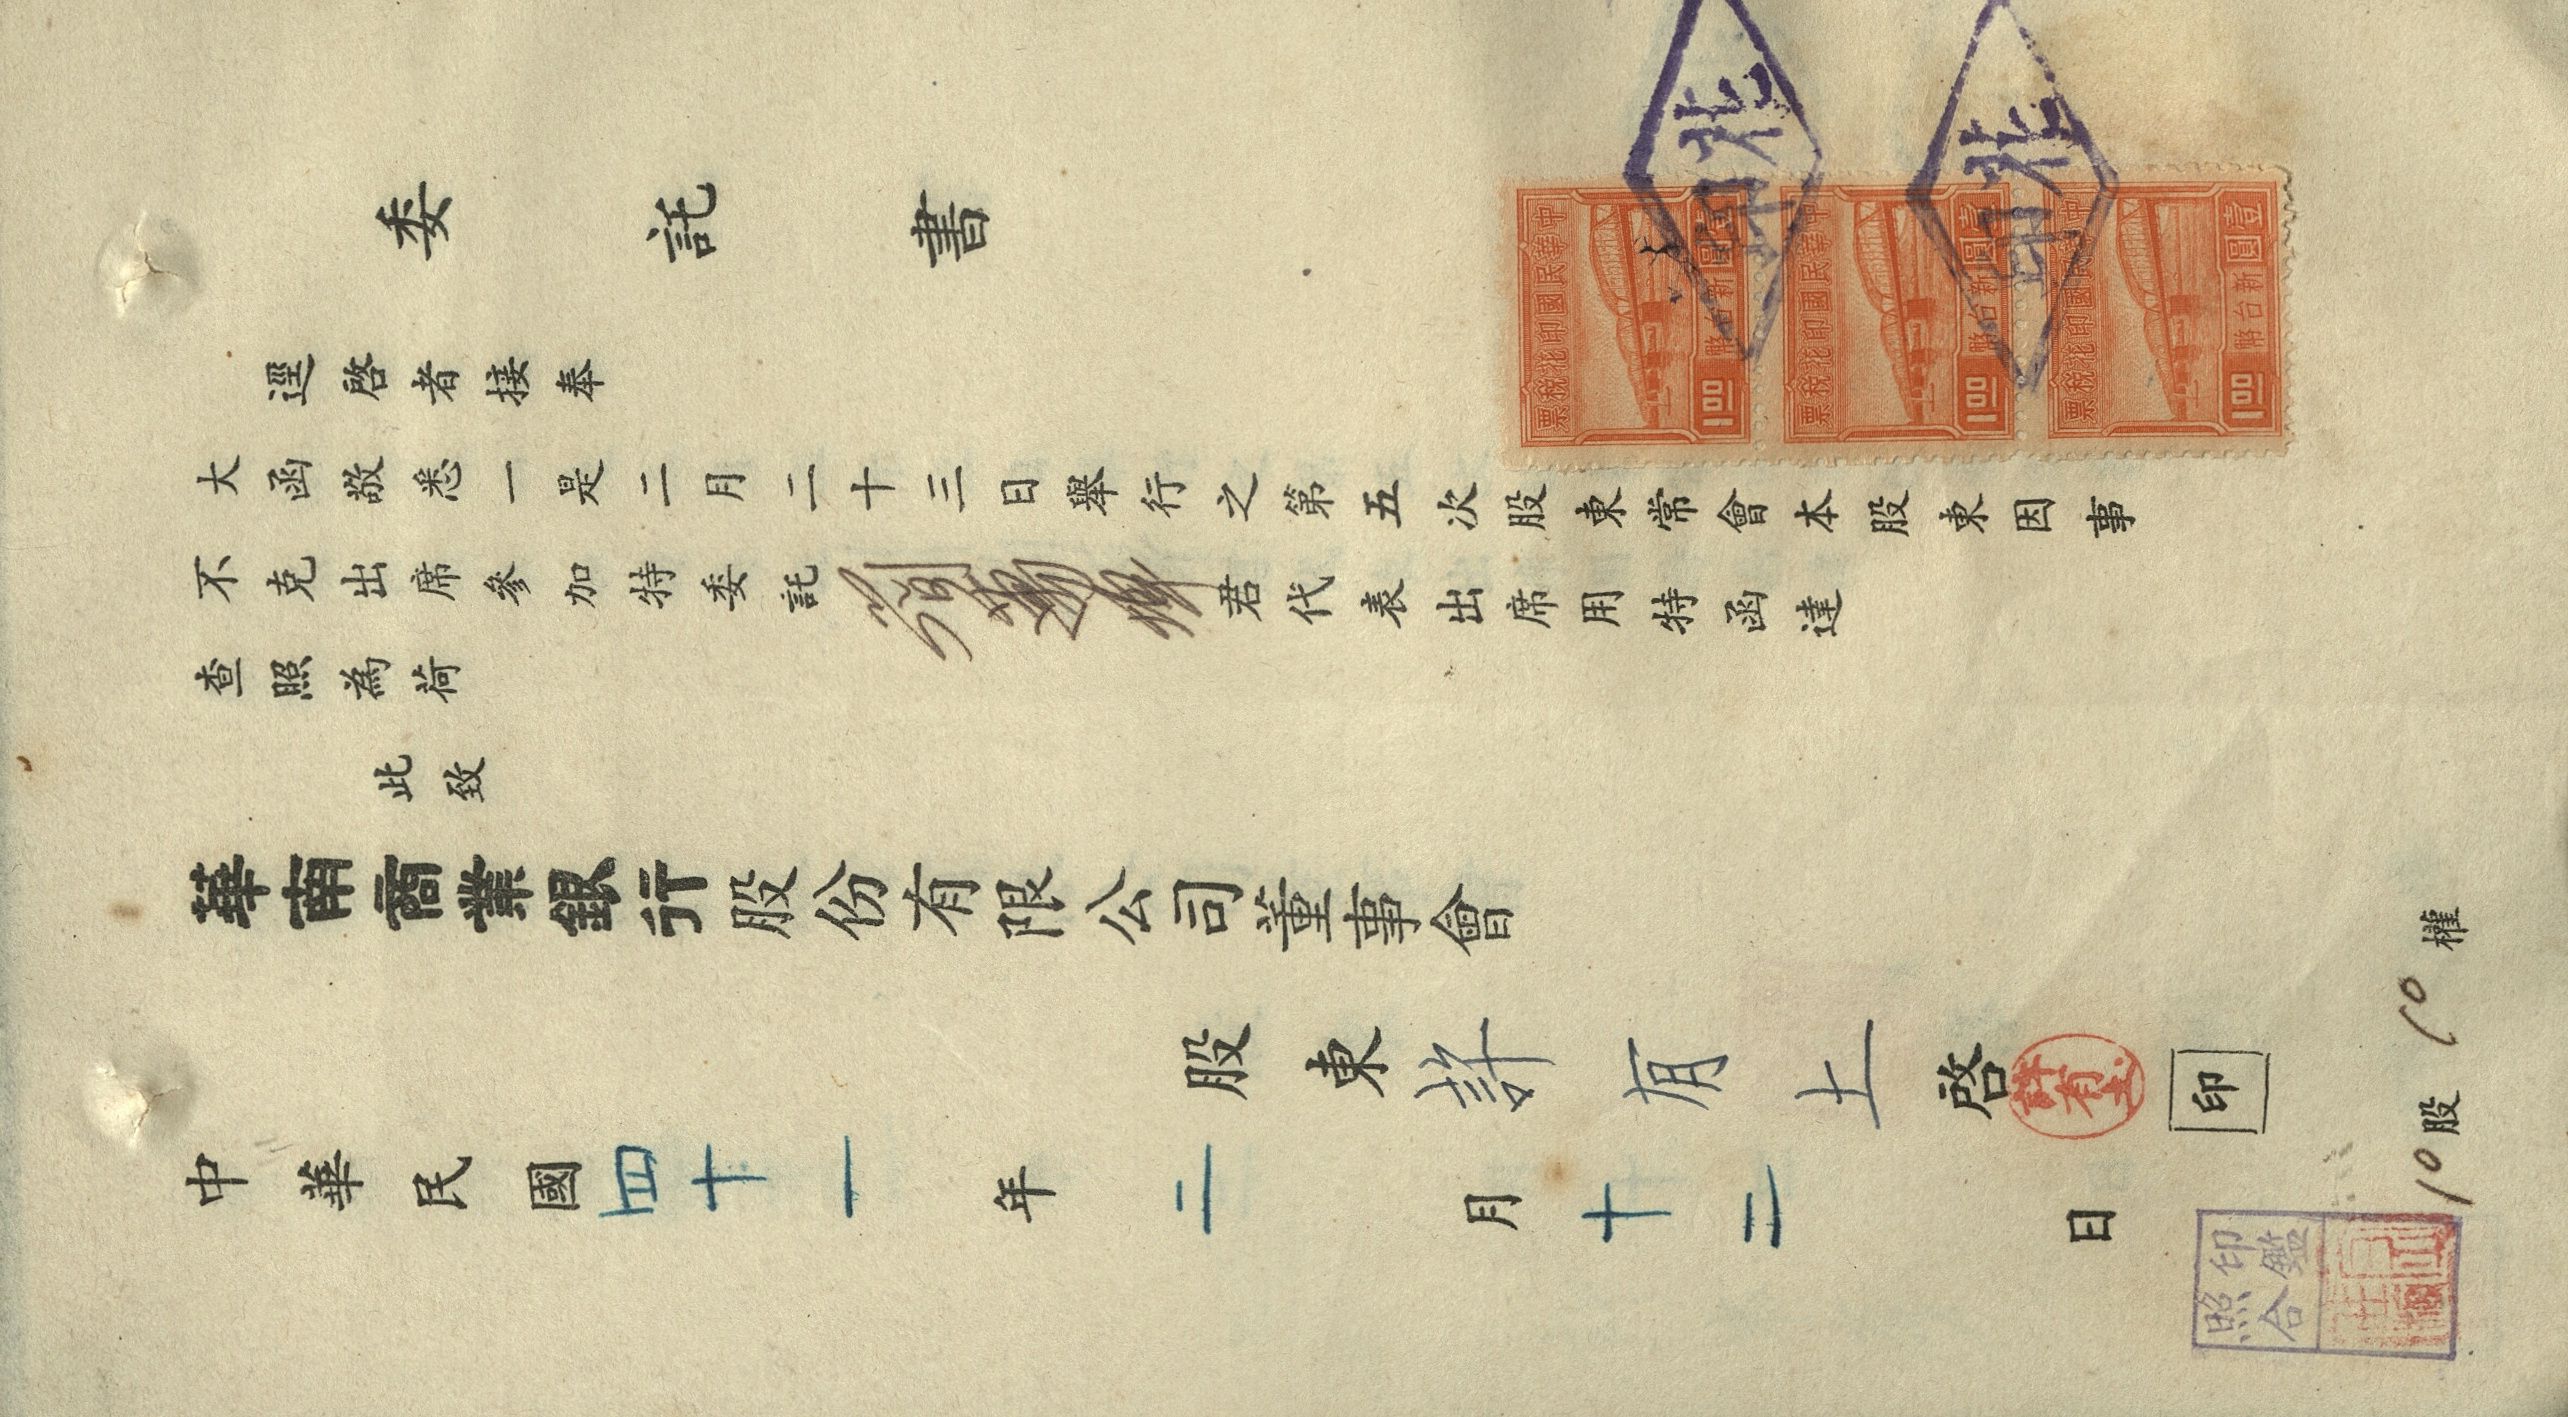 委託書
逕啓者接奉
大函敬悉一是二月二十三日舉行之第五次股東常會本股東因事
不克出席參加特委託 君代表出席用特函達
查照為荷
此致
華南商業銀行股份有限公司董事會
股東許有土啓 印
許有土
中華民國四十一年二月十二日
10股10權
印鑑
照合
中華民國印花稅票
壹圓
新台幣
1.00
中華民國印花稅票
壹圓
新台幣
1.00
中華民國印花稅票
壹圓
新台幣
1.00